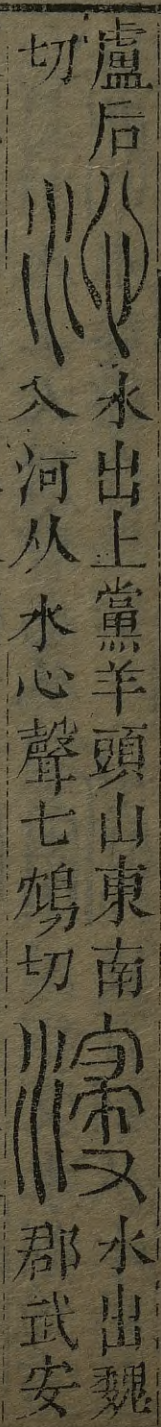 盧后
切
沁
水出上黨羊頭山東南
入河从水心聲七鴆切
濅
水出魏
郡武安